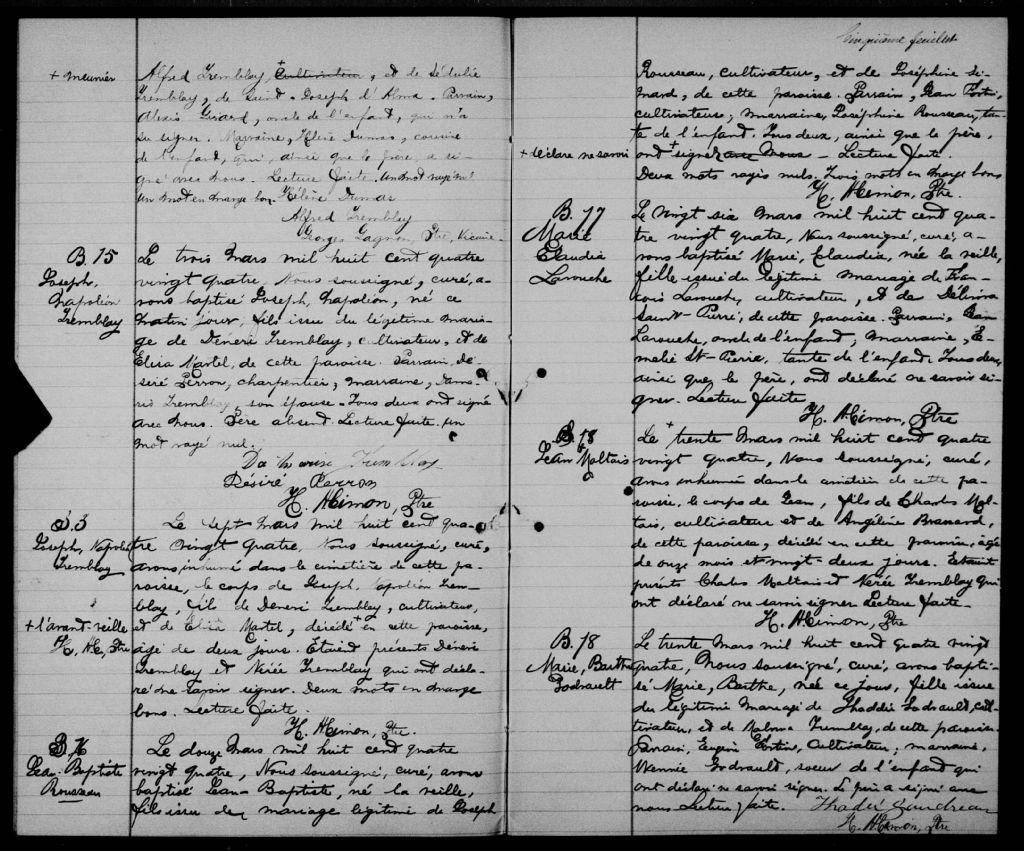 Cinquième feuillet
+ meunier
Alfred Tremblay, + Cultivateur, et de Sédulie
Tremblay, de Saint-Joseph d'Alma. Parrain,
Alexis Girard, oncle de l'enfant, qui n'a
su signer. Marraine, Hélène Dumas, cousine
de l'enfant, qui, ainsi que le père, a si-
gné avec nous. Lecture faite. Un mot rayé nul
un mot en marge bon. Hélène Dumas
Alfred Tremblay
Georges Gagnon, Ptre, Vicaire
B. 15
Joseph,
Napoléon
Tremblay
Le trois Mars mil huit cent quatre
vingt quatre, Nous soussigné, curé, a-
vons baptisé Joseph, Napoléon, né ce
matin jour, fils issu du légitime maria-
ge de Deneri Tremblay, cultivateur, et de
Eliza Martel, de cette paroisse. Parrain, Dé-
siré Perron, charpentier, marraine,
Tremblay, son épouse. Tous deux ont signé
avec nous. Père absent. Lecture faite. Un
mot rayé nul.
Tremblay
Désiré Perron
H. Himon, Ptre
S. 3
Joseph, Napoléon
Tremblay
+ l'avant-veille
H, H, Ptre
Le sept Mars mil huit cent qua-
tre vingt quatre, Nous soussigné, curé,
avons, inhumé dans le cimetière de cette pa-
roisse, le corps de Joseph, Napoléon Trem-
blay, fils de Deneri Tremblay, cultivateur,
et de Eliza Martel, décédé + en cette paroisse,
âgé de deux jours. Etaient présents Dénéri
Tremblay et Nérée Tremblay qui ont décla-
ré ne savoir signer. Deux mots en marge
bons. Lecture faite.
H. Himon, Ptre
B. 16
Jean-Baptiste
Rousseau
Le douze Mars mil huit cent quatre
vingt quatre, Nous soussigné, curé, avons
baptisé Jean-Baptiste, né la veille,
fils issu du mariage légitime de Joseph
Rousseau, cultivateur, et de Joséphine Si-
mard, de cette paroisse. Parrain, Jean Fortin,
cultivateur, marraine, Joséphine Rousseau, tan-
te de l'enfant. Tous deux, ainsi que le père,
+ déclaré ne savoir
ont + signé avec nous - Lecture faite.
Deux mots rayés nuls. Trois mots en marge bons
H. Himon, Ptre.
B. 17
Marie
Claudia
Larouche
Le vingt six Mars mil huit cent qua-
tre vingt quatre, Nous soussigné, curé, a-
vons baptisé Marie, Claudia, née la veille,
fille issue du légitime mariage de Fran-
çois Larouche, cultivateur, et de Délvina
Saint-Pierre, de cette paroisse. Parrain, Jean
Larouche, oncle de l'enfant, Marraine, É-
melie St-Pierre, tante de l'enfant. Tous deux,
ainsi que le père, ont déclaré ne savoir si-
gner. Lecture faite
H. Himon, Ptre
S. 18
Jean Maltais
Le trente Mars mil huit cent quatre
vingt quatre, Nous soussigné, curé,
avons inhumé dans le cimetière de cette pa-
roisse, le corps de Jean, fils de Charles Mal-
tais, cultivateur et de Angéline Brassard,
de cette paroisse, décédé en cette paroisse, âgé
de onze mois et vingt-deux jours. Etaient
présents Charles Maltais et Nérée Tremblay qui
ont déclaré ne savoir signer Lecture faite-
H. Himon, Ptre
B. 18
Marie, Barthe
Godrault
Le trente Mars mil huit cent quatre vingt
quatre, Nous soussigné, curé, avons bapti-
sé Marie, Barthe, née ce jour, fille issue
du légitime mariage de Thaddée Godrault, cul-
tivateur, et de Tremblay, de cette paroisse
Parrain, Eugène Fortin, cultivateur, marraine,
Wennie Godrault, soeur de l'enfant qui
ont déclaré ne savoir signer. Le père a signé avec
nous Lecture faite. Thadée Gaudreau
H. Himon, Ptre